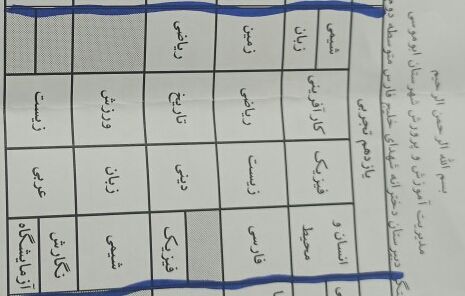 بسم الله الرحمن الرحیم
مدیریت آموزش و پرورش شهرستان ابوموسی
دبیرستان دخترانه شهدای خلیج فارس متوسطه دوم
یازدهم تجربی
انسان و
محیط
فیزیک
کارآفرینی
شیمی
زبان
فارسی
زیست
ریاضی
زمین
فیزیک
دینی
تاریخ
ریاضی
شیمی
زبان
ورزش
نگارش
آزمایشگاه
عربی
زیست